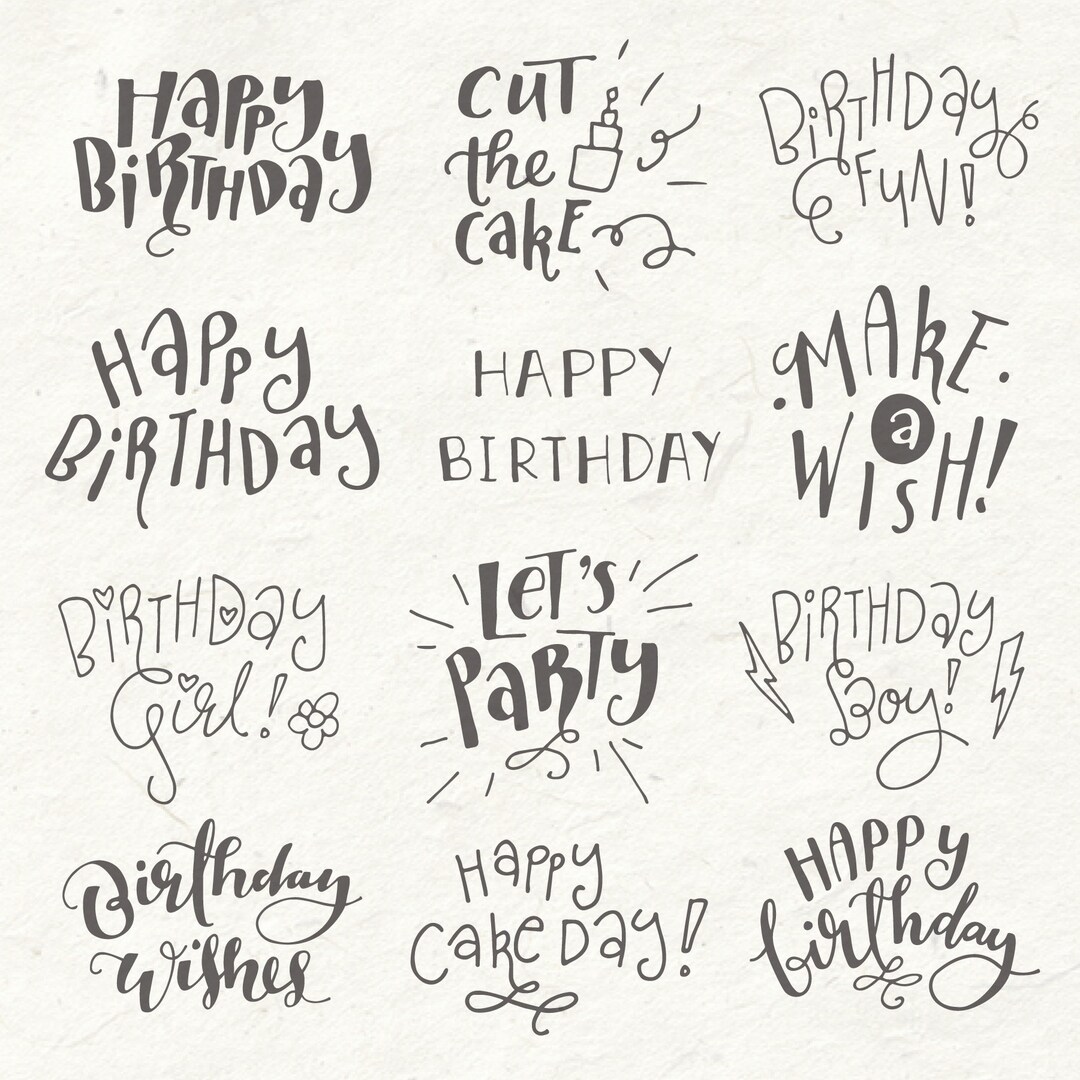 Happy
BiRTHDay
CUT
the
cakE
BiRTHDay
FUN!
Happy
BiRTHDay
HAPPY
BIRTHDAY
MAKE
a
WISH!
BiRTHDay
Girl!
LET'S
PaRTY
BiRTHDay
Boy!
Birthday
Wishes
Happy
CakeDay!
HAPPY
birthday